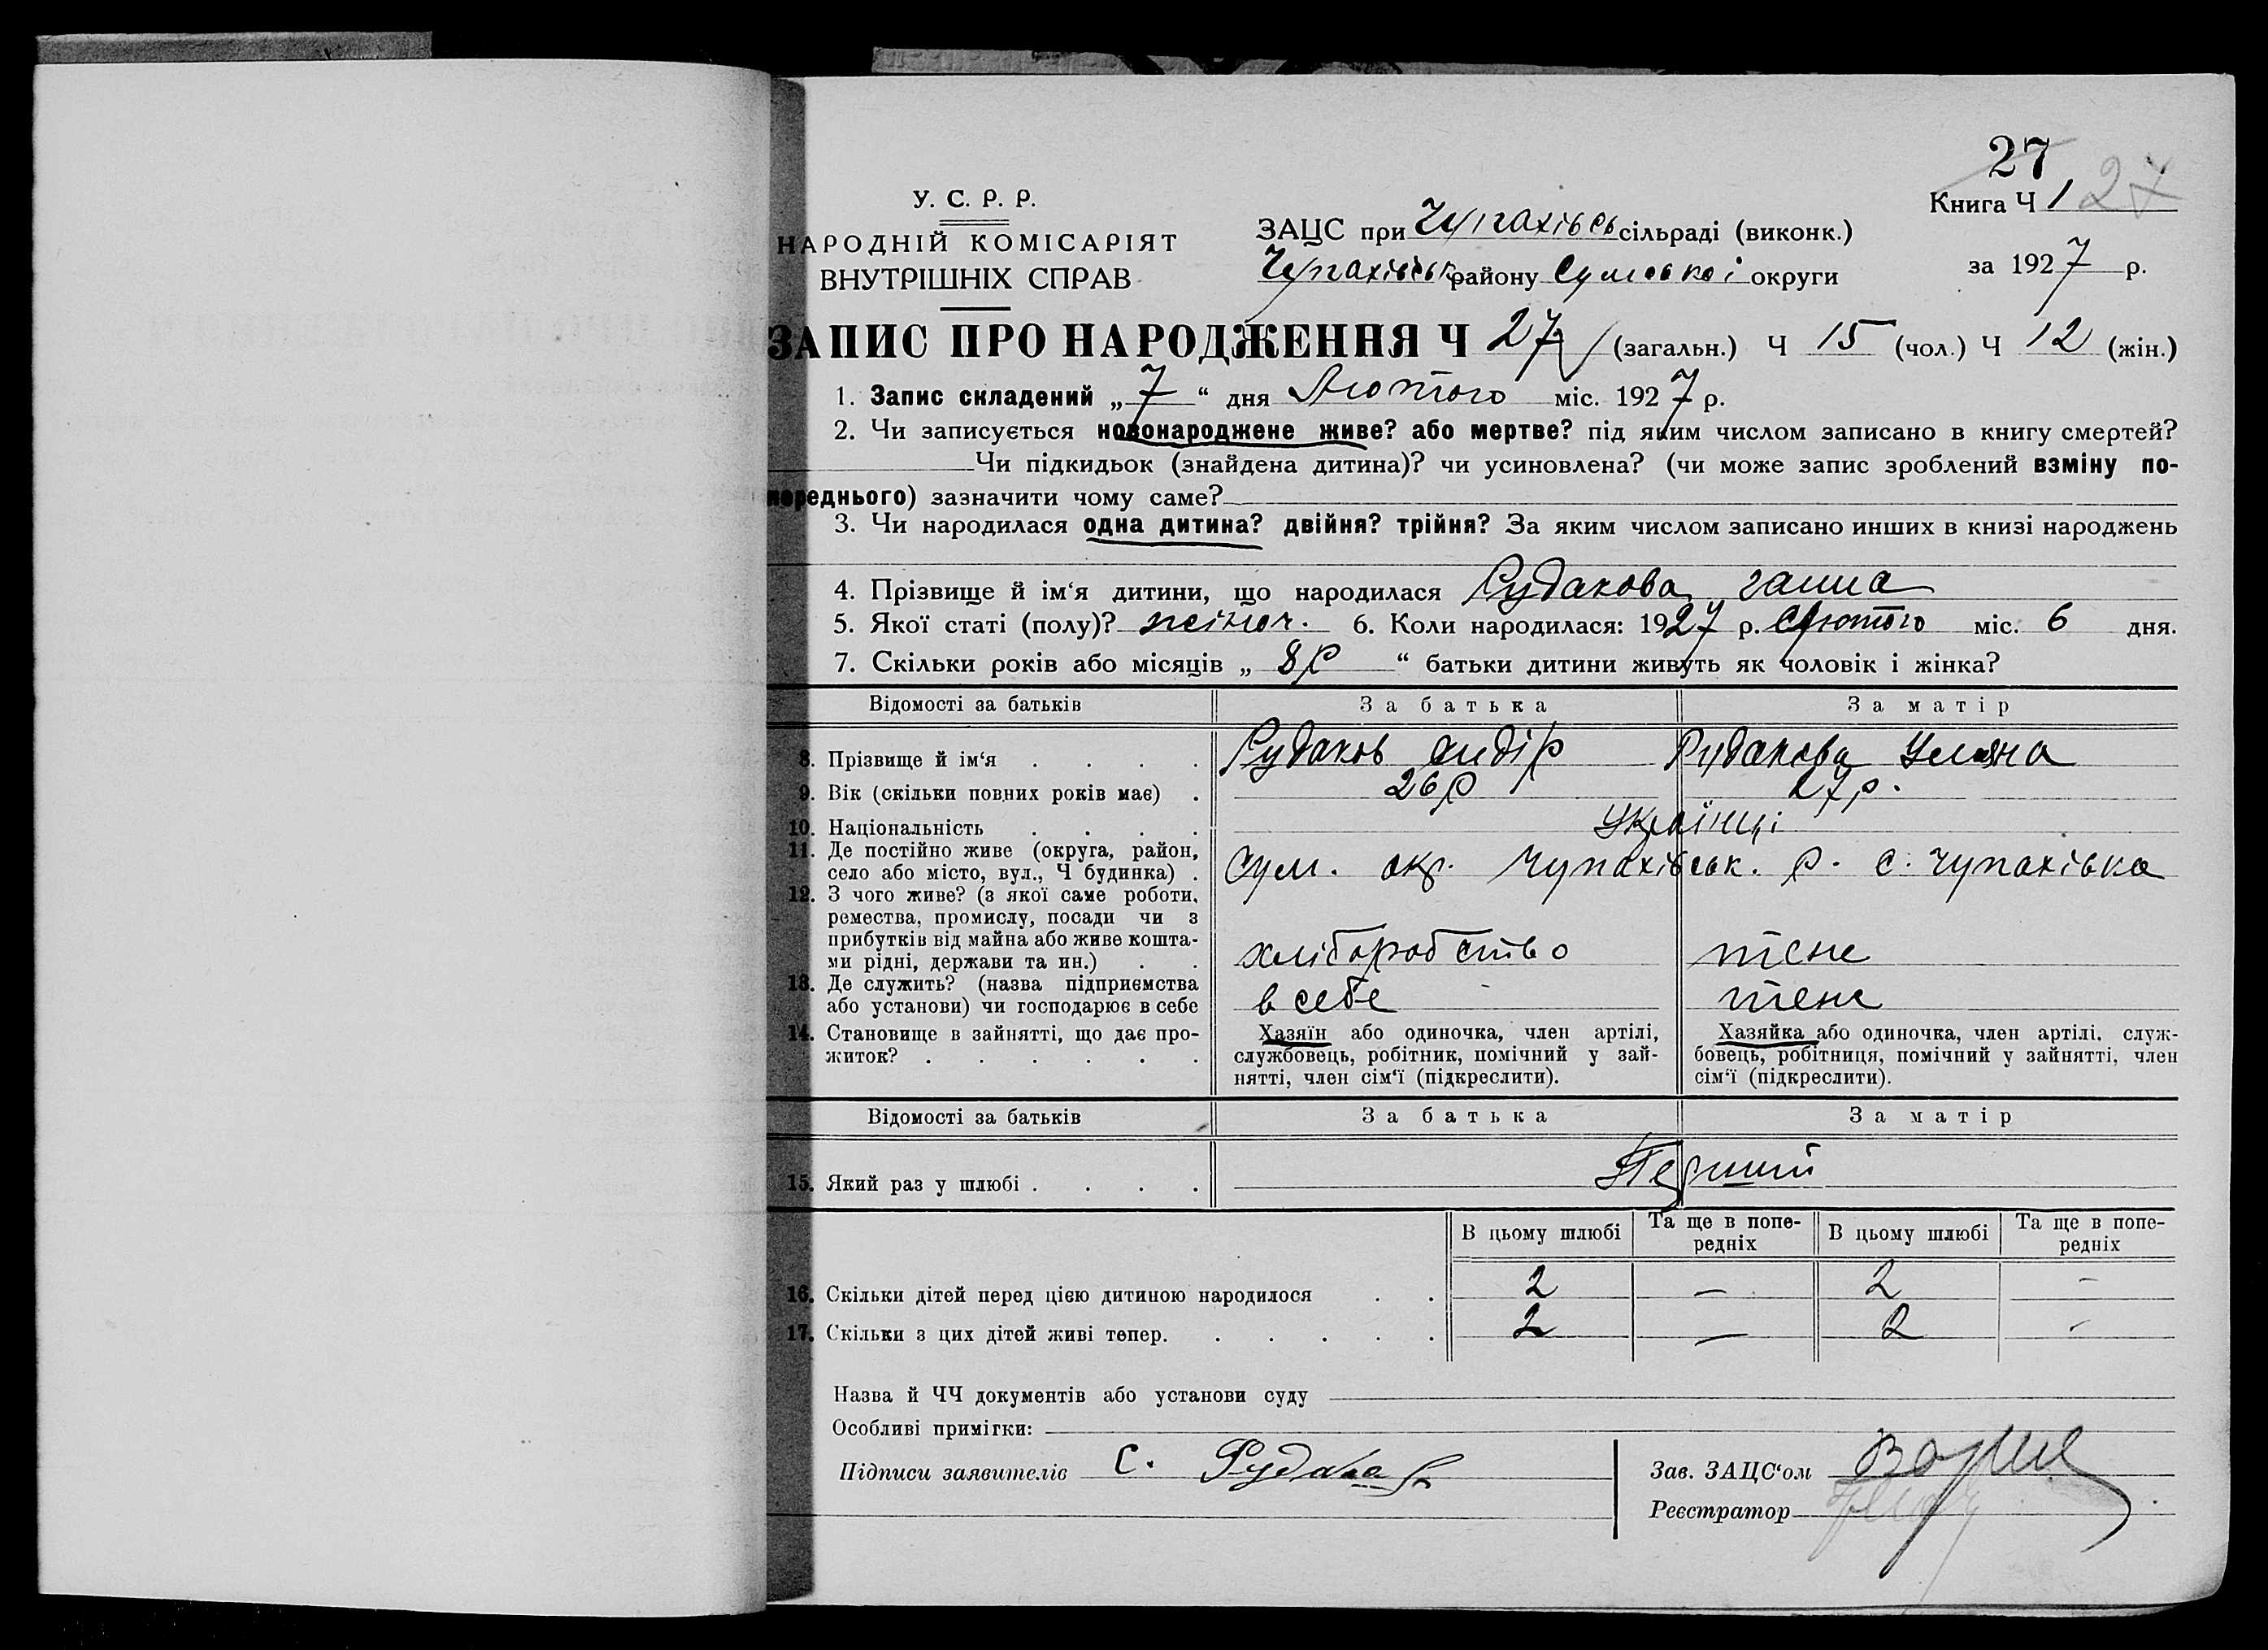 27
У. С. Р. Р.
НАРОДНІЙ КОМІСАРІЯТ
ВНУТРІШНІХ СПРАВ
ЗАЦС при Чупахівсь сільраді (виконк.)
Чупахівськ району Сумської округи
Книга Ч 1 27
за 1927 р.
ЗАПИС ПРО НАРОДЖЕННЯ Ч 27 (загальн.) Ч 15 (чол.) Ч 12 (жін.)
1. Запис складений „ 7 “ дня Лютого міс. 1927 р.
2. Чи записується новонароджене живе? або мертве? під яким числом записано в книгу смертей?
Чи підкидьок (знайдена дитина)? чи усиновлена? (чи може запис зроблений взміну по-
переднього) зазначити чому саме?
3. Чи народилася одна дитина? двійня? трійня? За яким числом записано инших в книзі народжень
4. Прізвище й ім‘я дитини, що народилася Рудакова ганна
5. Якої статі (полу)? жіноч. 6. Коли народилася: 1927 р. Лютого міс. 6 дня.
7. Скільки років або місяців „ 8 р “ батьки дитини живуть як чоловік і жінка?
Відомості за батьків За батька За матір
8. Прізвище й ім‘я . . . . Рудаков Рудакова Уляна
9. Вік (скільки повних років має) . 26 р 27 р.
10. Національність . . . . Українці
11. Де постійно живе (округа, район,
село або місто, вул., Ч будинка) . Сум. окр. Чупахівськ. р. с. Чупахівка
12. З чого живе? (з якої саме роботи,
ремества, промислу, посади чи з
прибутків від майна або живе кошта-
ми рідні, держави та ин.) . . хліборобство тене
13. Де служить? (назва підприємства
або установи) чи господарює в себе в себе тене
14. Становище в зайнятті, що дає про-
житок? . . . . . .
Хазяїн або одиночка, член артілі,
службовець, робітник, помічний у зай-
нятті, член сім‘ї (підкреслити).
Хазяйка або одиночка, член артілі, служ-
бовець, робітниця, помічний у зайнятті, член
сім‘ї (підкреслити).
Відомості за батьків За батька За матір
15. Який раз у шлюбі . . . . Перший
В цьому шлюбі Та ще в попе-
редніх В цьому шлюбі Та ще в попе-
редніх
16. Скільки дітей перед цією дитиною народилося . . 2 — 2 —
17. Скільки з цих дітей живі тепер. . . . . . 2 — 2 -
Назва й ЧЧ документів або установи суду
Особливі примітки:
Підписи заявителів С.
Зав. ЗАЦС‘ом
Реєстратор